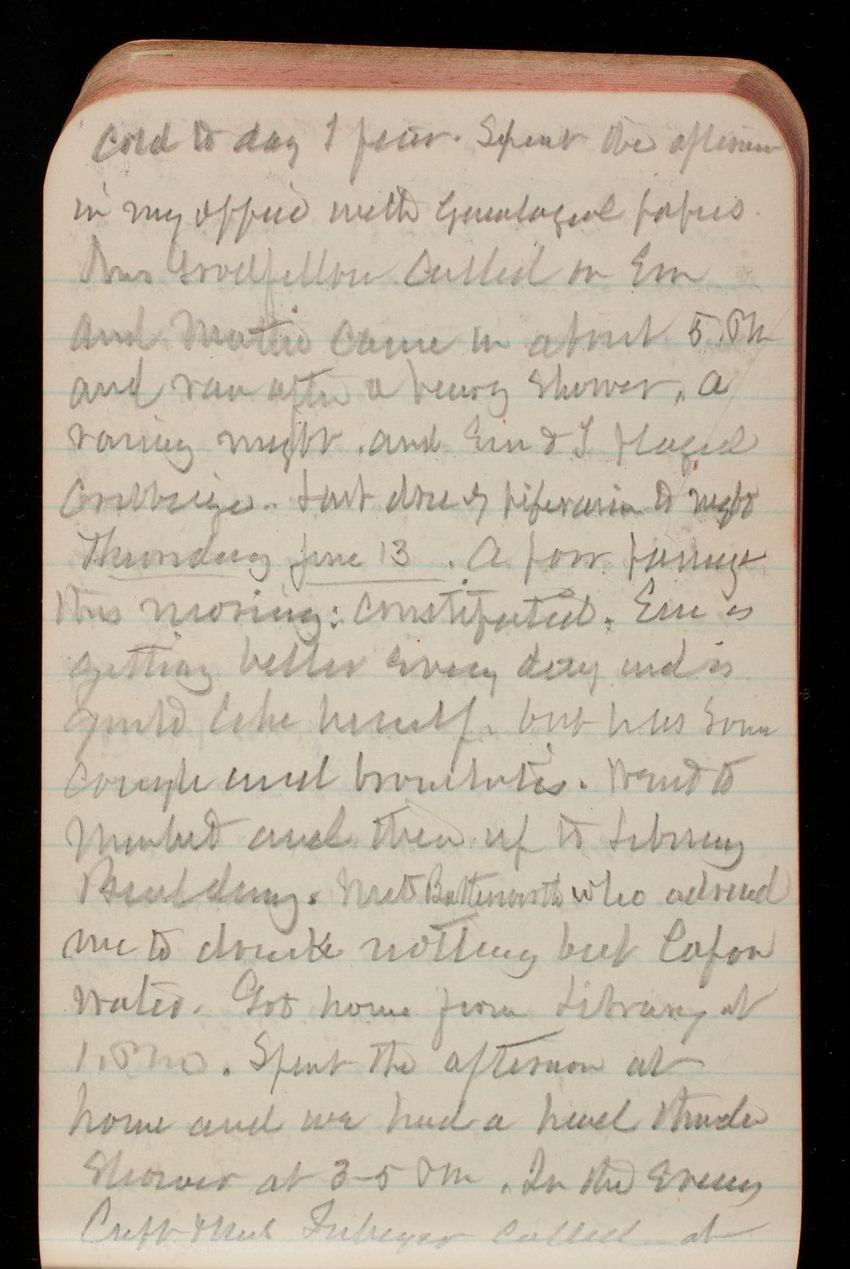 cold to day I fear. Spent the afternoon
in my office with Genealogical papers.
Mrs Goodfellow called on Em
and Mattie came in about 5. PM
and ran after a heavy shower, a
raining night. and Em & I played
Cribbage. Last dose of piperazin to night
Thursday June 13. A poor passage
this morning: constipated. Em is
getting better every day and is
quite like herself. but has some
cough and bronchitis. Went to
Market and then up to Library
Building. Met Butterworth who advised
me to drink nothing but
water. Got home from Library at
1. PM. Spent the afternoon at
home and we had a thunder
shower at 3-5 PM. In the evening
Capt & Mrs called at